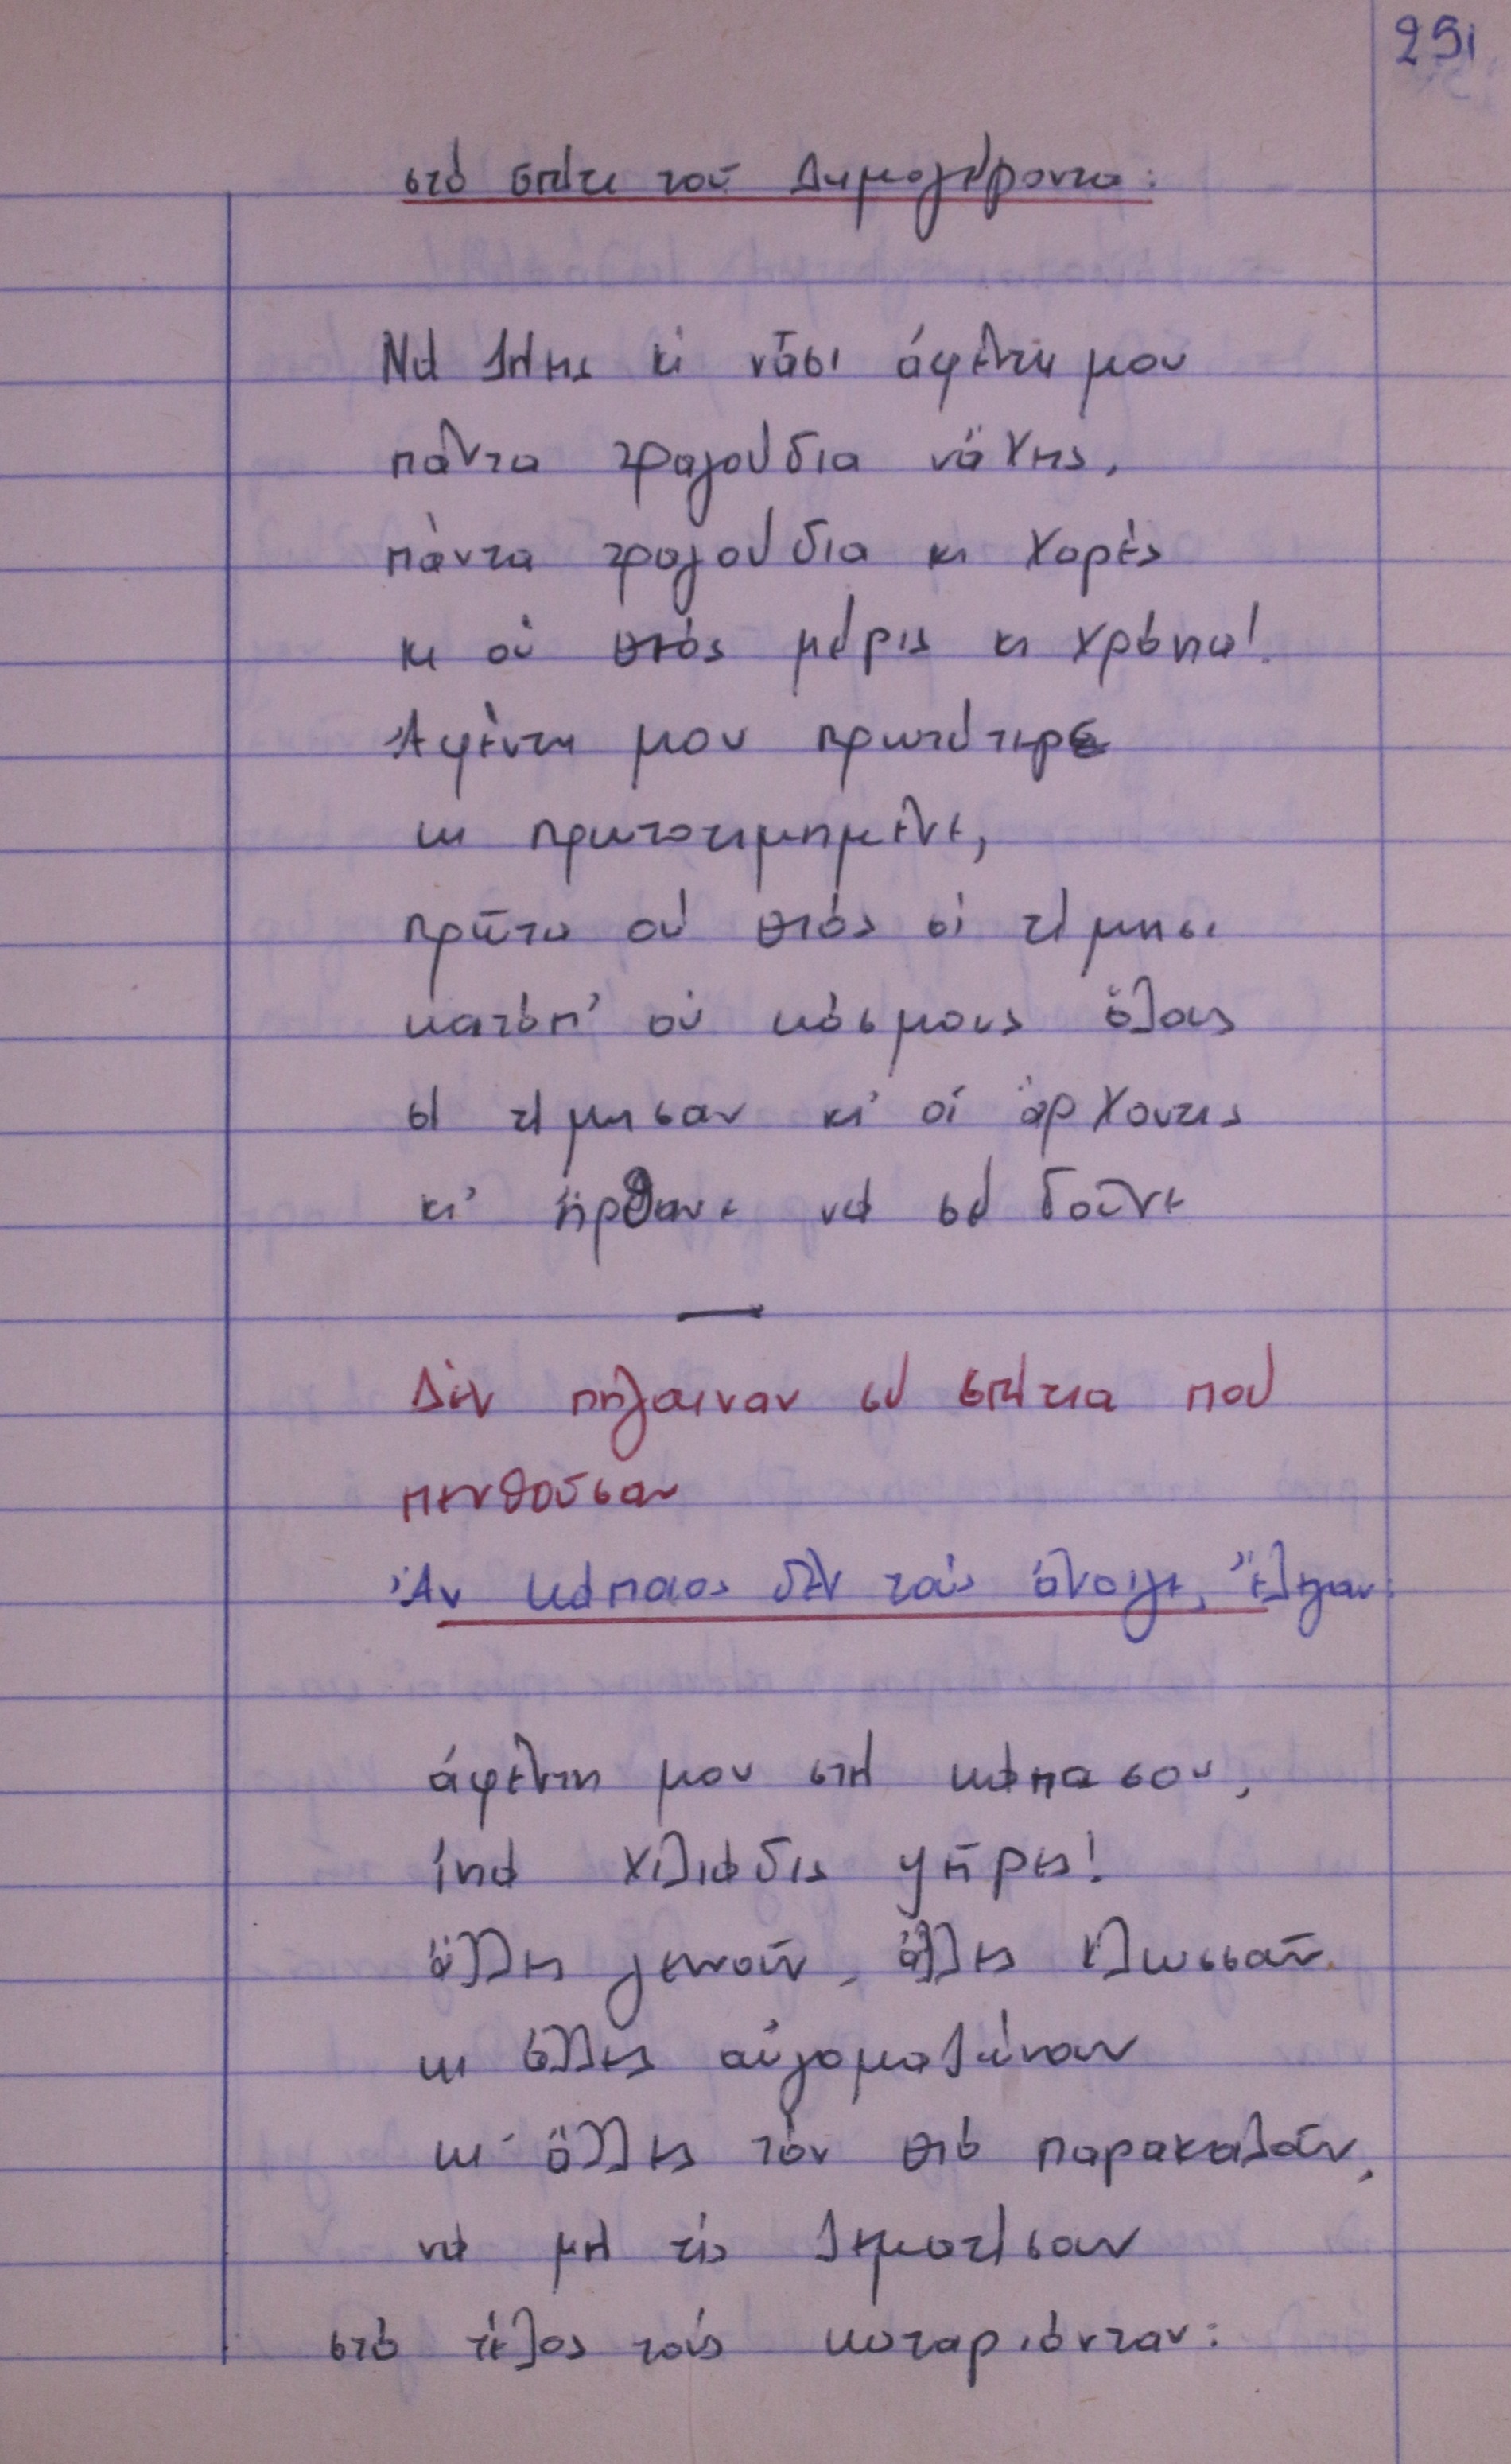 291
στό σπίτι τοῦ Δημογέροντα:
Νά ζήης κι νἆσι ἀφέντη μου
πάντα τραγούδια νἄχης,
πάντα τραγούδια κι χαρές
κι οὑ θιός μέρις κι χρόνια!
Ἀφέντη μου πρωτότιμε
κι πρωτοτιμημένε,
πρῶτα οὑ θιός σί τίμησι
κατόπ' οὑ κόσμους ὅλους
σί τίμησαν κι' οἱ ἄρχοντις
κι' ἤρθανε νά σέ δοῦνε
Δέν πήγαιναν σέ σπίτια πού
πενθοῦσαν
Ἄν κάποιος δέν τούς ἄνοιγε, ἔλεγαν:
ἀφέντη μου στή κάπα σου,
χιλιάδις ψῆρες!
ἄλλες γεννοῦν, ἄλλες κλωσσοῦν
κι ἄλλες αὐγομαζώνουν
κι' ἄλλες τόν θιό παρακαλοῦν,
νά μή τίς ζηματίσουν
στό τέλος τούς καταριόνταν: